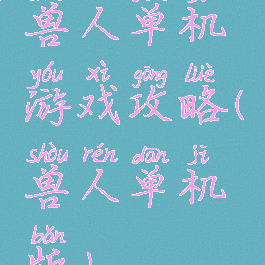 兽人单机
yóu xì gōng lüè
游戏攻略(
shòu rén dān jī
兽人单机
bǎn
版)